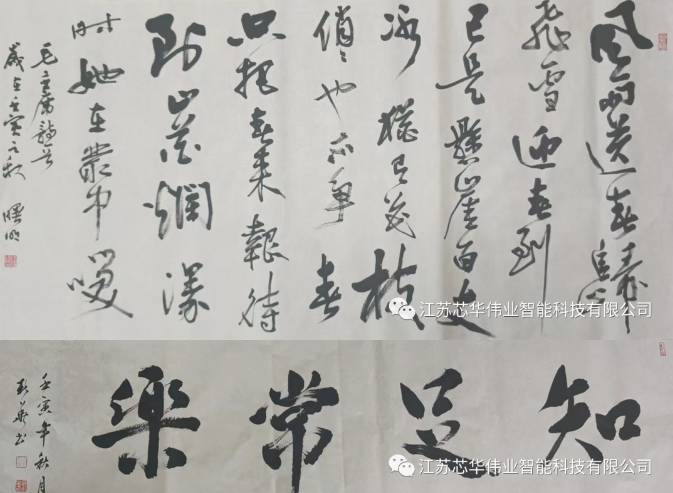 風雨送春歸
飛雪迎春到
已是懸崖百丈
冰猶有花枝
俏〻也不爭春
只把春来報待
到山花爛漫
時她在叢中笑
毛主席
歲在壬寅之秋 曙明
江苏芯华伟业智能科技有限公司
知足常樂
壬寅年秋月
江苏芯华伟业智能科技有限公司